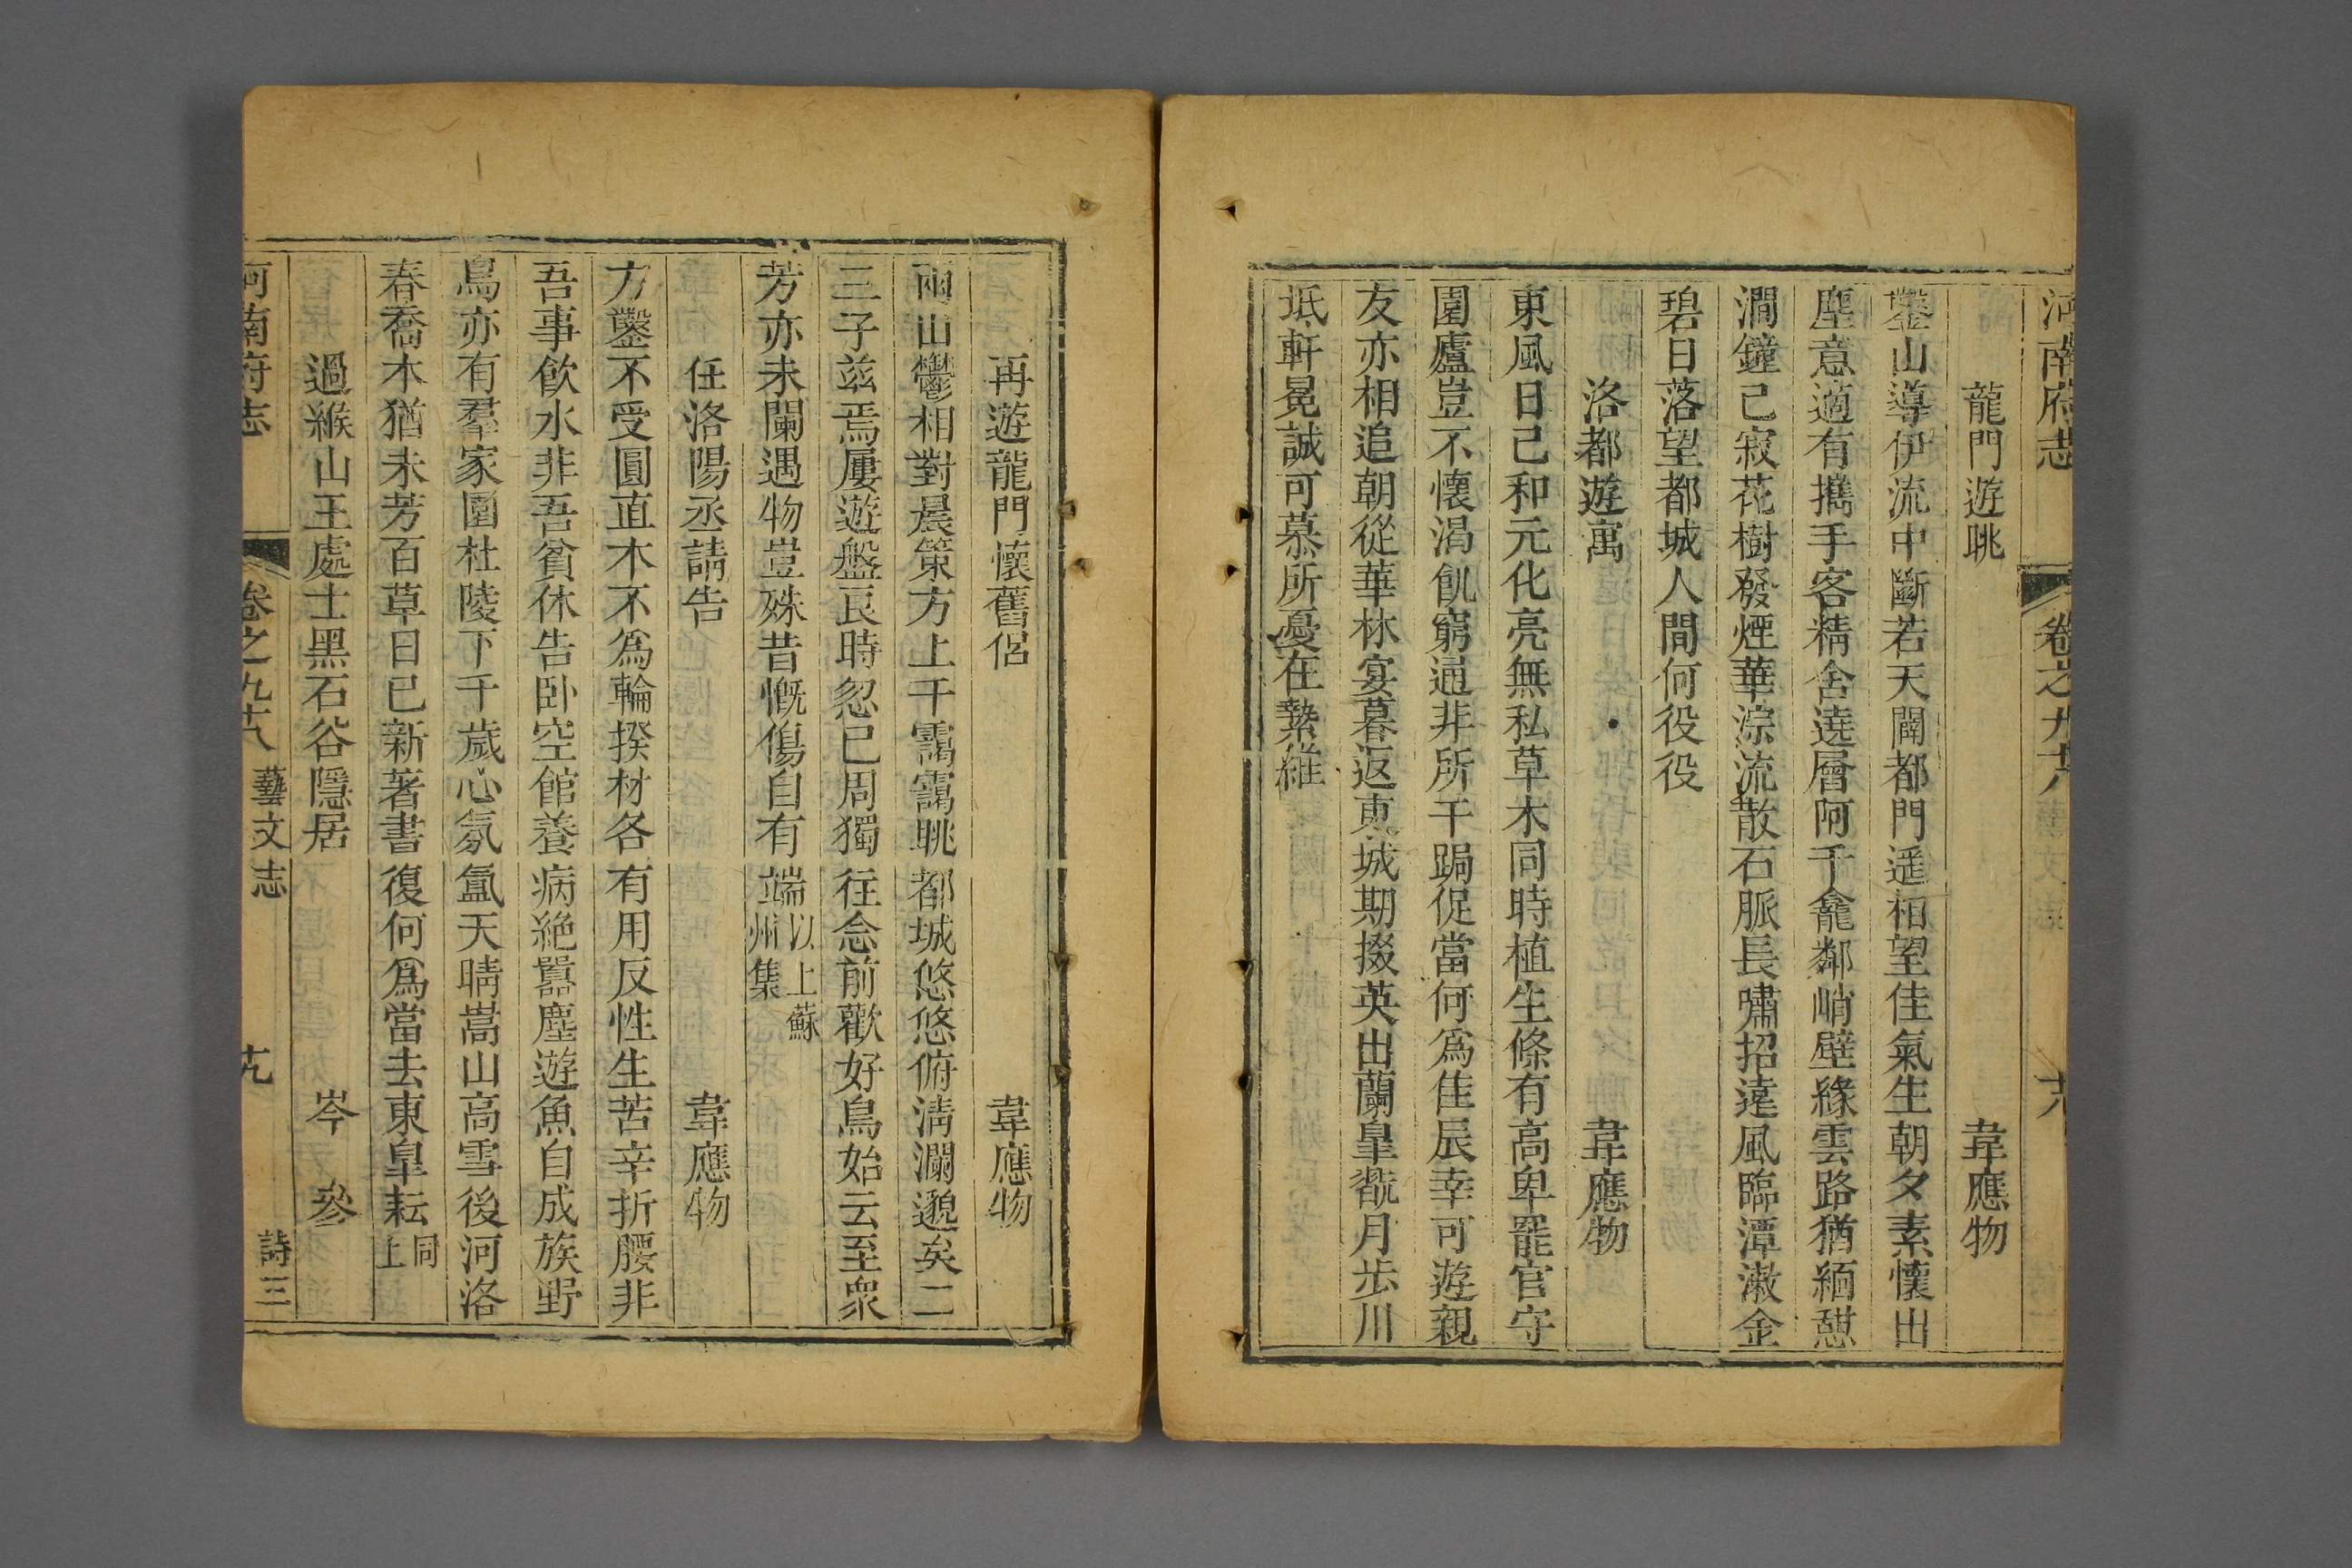 河南府志 卷之九十八 十八
龍門遊眺 韋應物
鑿山導伊流中斷若天闢都門遥相望佳氣生朝夕素懷出
塵意適有攜手客精舍遶層阿千龕鄰峭壁緣雲路猶緬憇
澗鐘已寂花樹發煙華淙流散石脈長嘯招遠風臨潭漱金
碧日落望都城人間何役役
洛都遊寓 韋應物
東風日已和元化亮無私草木同時植生條有高卑罷官守
園廬豈不懷渴飢窮通非所干跼促當何爲佳辰幸可遊親
友亦相追朝從華林宴暮返東城期掇英出蘭皐翫月步川
坻軒冕誠可慕所憂在縶維
再遊龍門懷舊侶 韋應物
兩山鬱相對晨策方上干靄靄眺都城悠悠俯淸瀾邈矣二
三子兹焉屢遊盤良時忽已周獨往念前歡好鳥始云至衆
芳亦未闌遇物豈殊昔慨傷自有端以上蘇州集
任洛陽丞請告 韋應物
方鑿不受圓直木不爲輪揆材各有用反性生苦辛折腰非
吾事飲水非吾貧休告卧空館養病絶囂塵遊魚自成族野
鳥亦有羣家園杜陵下千歲心氛氳天晴嵩山高雪後河洛
春喬木猶未芳百草日已新著書復何爲當去東皐耘同上
過緱山王處士黑石谷隱居 岑參
河南府志 卷之九十八 藝文志 十九 詩三